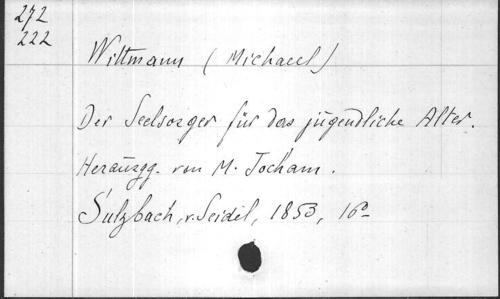 272
222
Wittmann (Michael)
Der Seelsorger für das jugendliche Alter.
Herausgg. von M. Jocham.
Sulzbach, v. Seidel, 1853, 16°